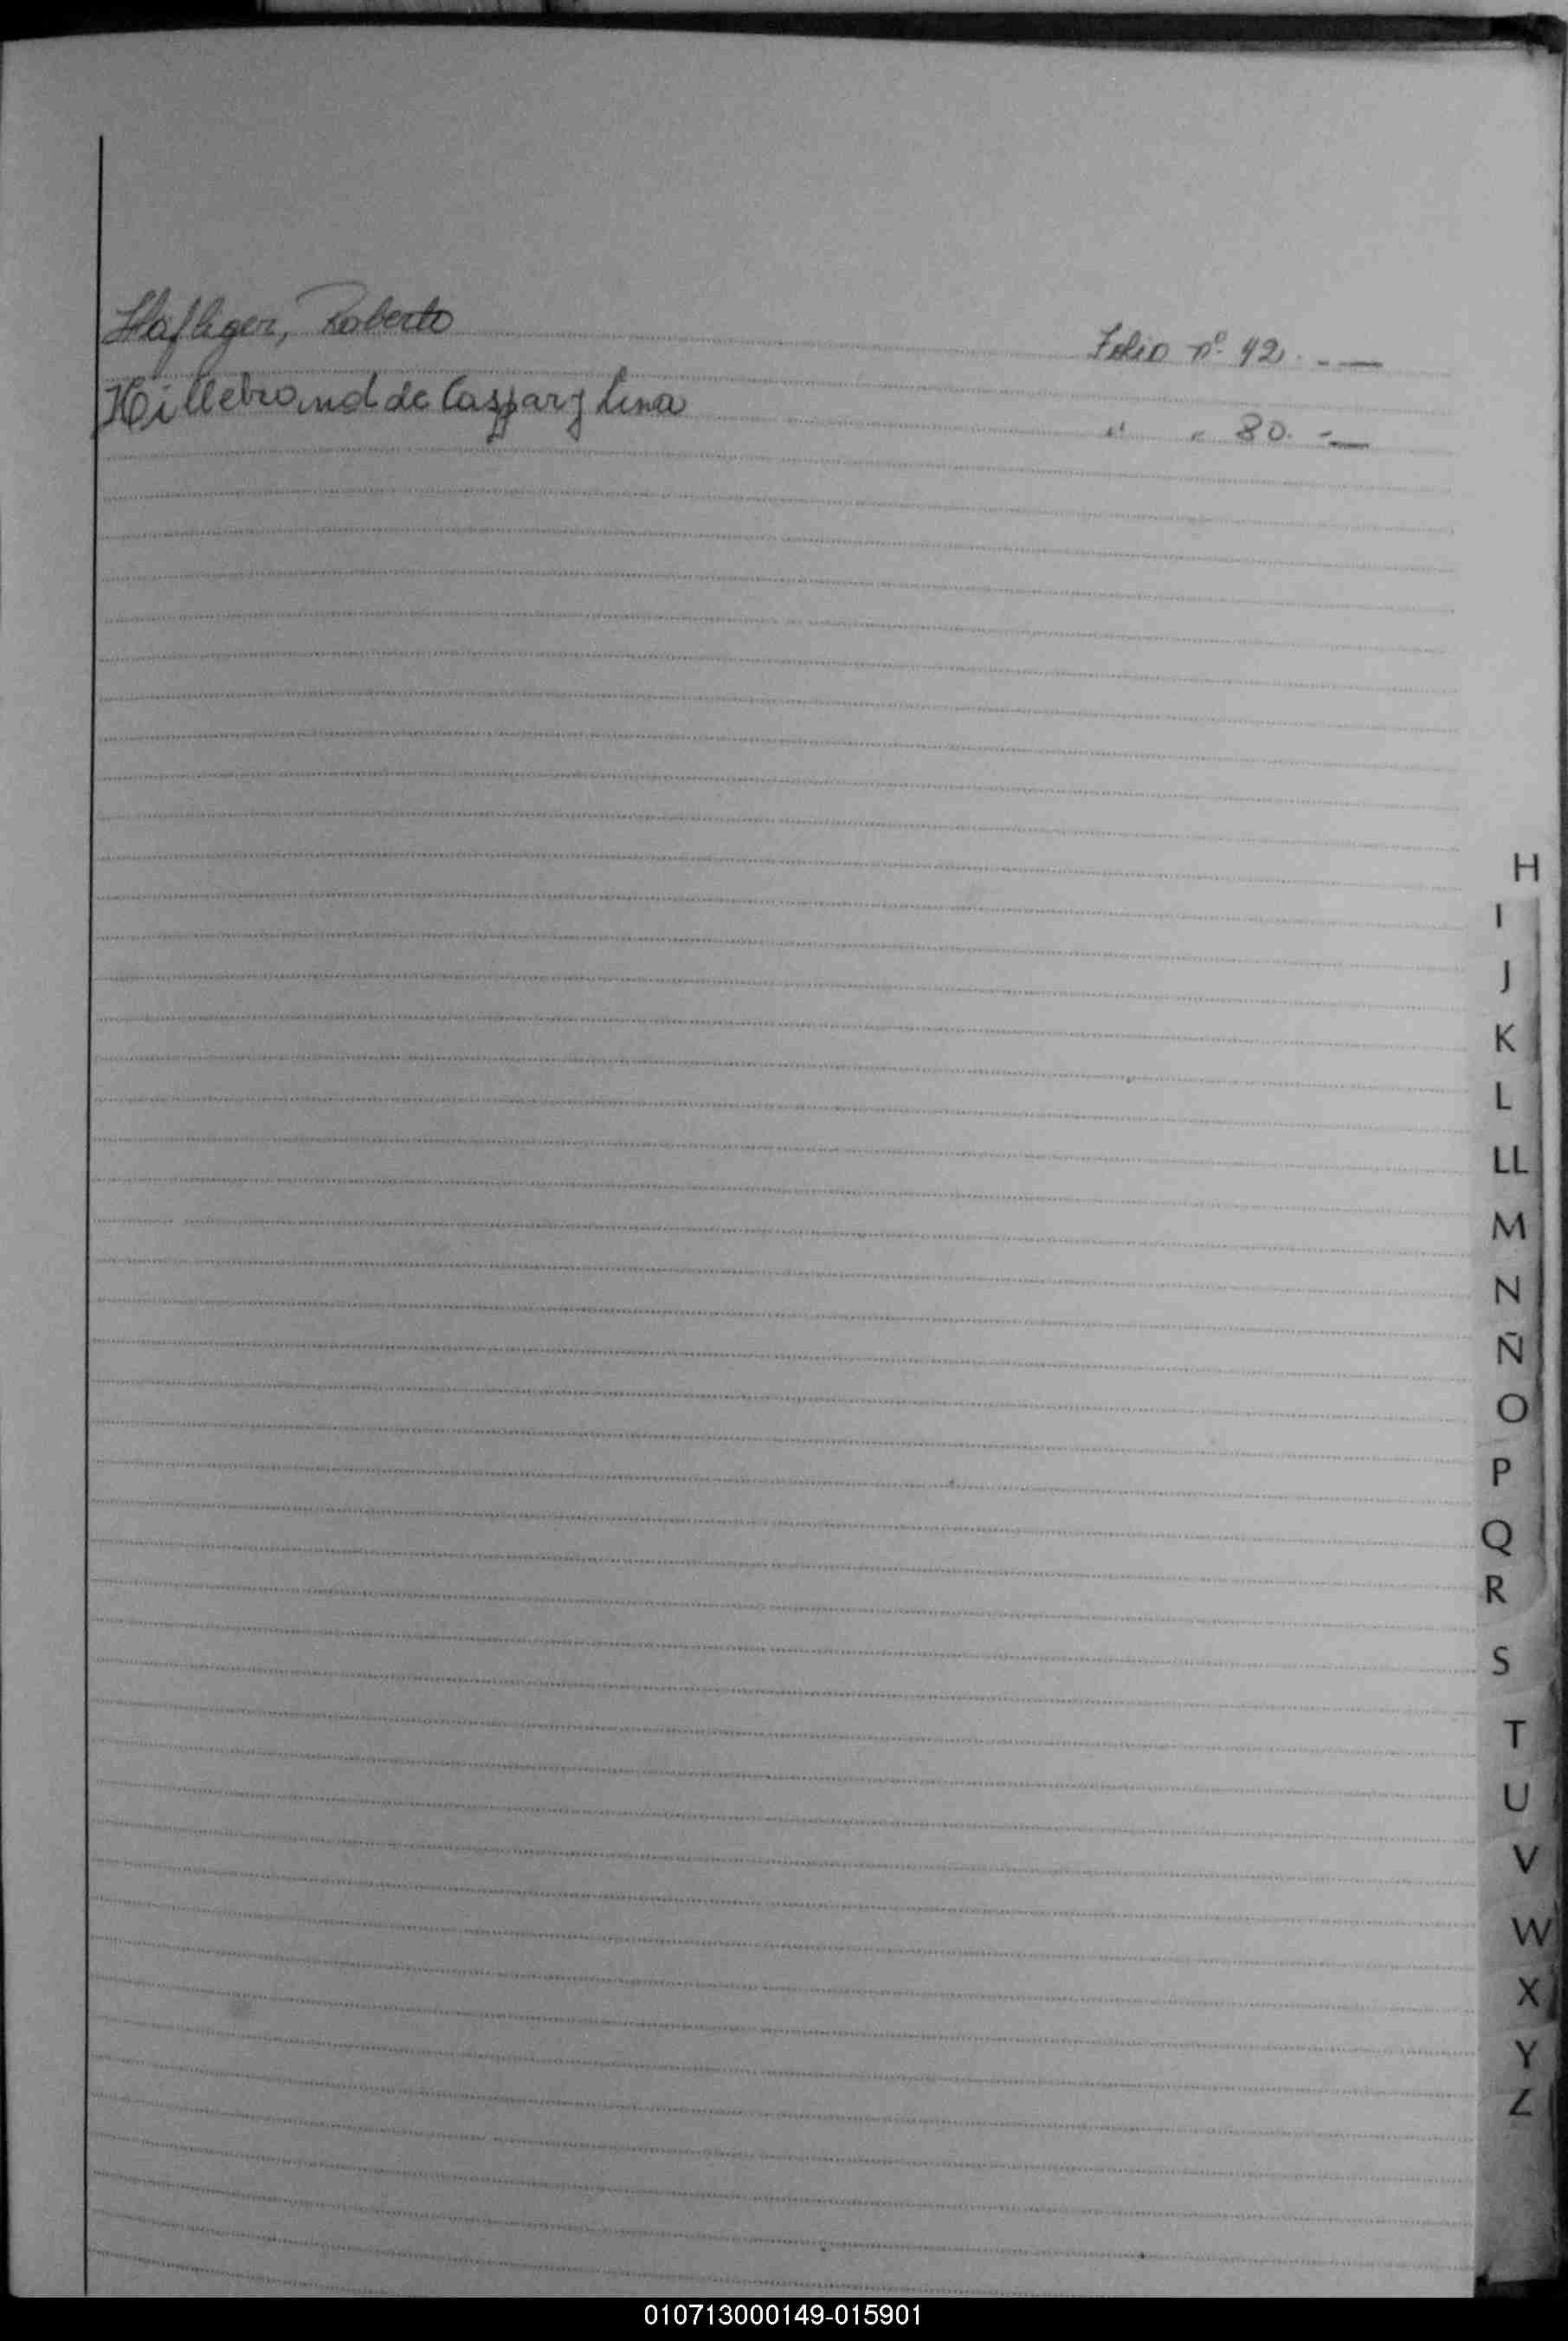 Häfliger, Roberto Folio nº 42. - —
Hillebrand de Casparj Lina " " 80. - —
H
I
J
K
L
LL
M
N
Ñ
O
P
Q
R
S
T
U
V
W
X
Y
Z
010713000149-015901